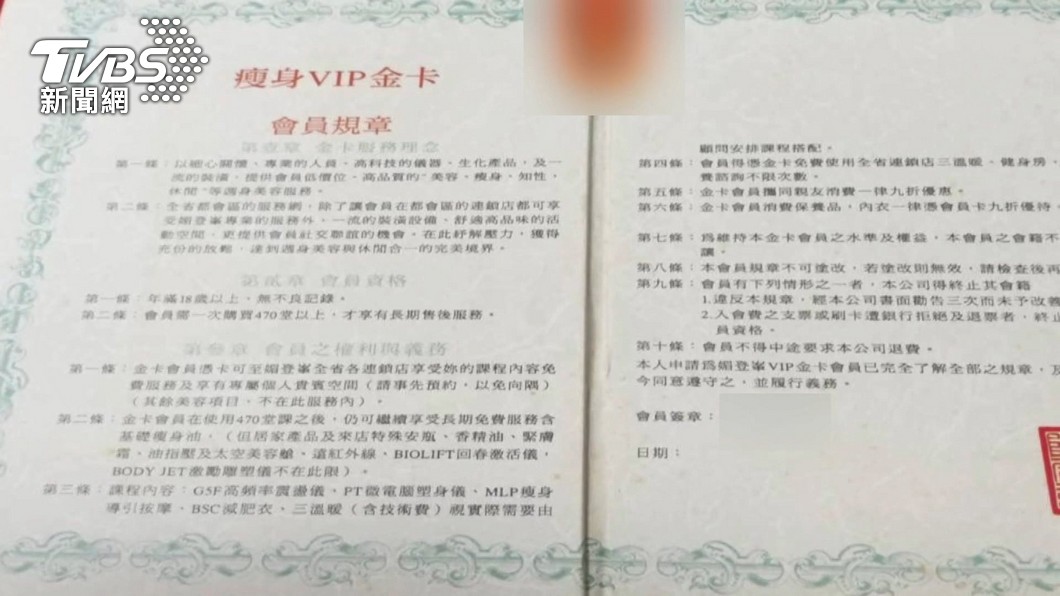 TVBS
新聞網
瘦身VIP金卡
會員規章
第壹章 金卡服務理念
第一條：以細心關懷、專業的人員、高科技的儀器、生化產品，及一
流的裝潢，提供會員低價位、高品質的"美容、瘦身、知性、
休閒"等週身美容服務。
第二條：全省都會區的服務網，除了讓會員在都會區的連鎖店都可享
受媚登峯專業的服務外，一流的裝潢設備、舒適高品味的活
動空間，更提供會員社交聯誼的機會。在此紓解壓力，獲得
充份的放鬆，達到週身美容與休閒合一的完美境界。
第貳章 會員資格
第一條：年滿18歲以上，無不良記錄。
第二條：會員需一次購買470堂以上，才享有長期售後服務。
第參章 會員之權利與義務
第一條：金卡會員憑卡可至媚登峯全省各連鎖店享受妳的課程內容免
費服務及享有專屬個人貴賓空間（請事先預約，以免向隅）
（其餘美容項目，不在此服務內）。
第二條：金卡會員在使用470堂課之後，仍可繼續享受長期免費服務含
基礎瘦身油，（但居家產品及來店特殊安瓶、香精油、緊膚
霜、油指壓及太空美容艙、遠紅外線、BIOLIFT回春激活儀，
BODY JET激勵雕塑儀不在此限）。
第三條：課程內容：G5F高頻率震盪儀、PT微電腦塑身儀、MLP瘦身
導引按摩、BSC減肥衣、三溫暖（含技術費）視實際需要由
顧問安排課程搭配。
第四條：會員得憑金卡免費使用全省連鎖店三溫暖、健身房、
養諮詢不限次數。
第五條：金卡會員攜同親友消費一律九折優惠。
第六條：金卡會員消費保養品，內衣一律憑會員卡九折優待。
第七條：為維持本金卡會員之水準及權益，本會員之會籍不
讓。
第八條：本會員規章不可塗改，若塗改則無效，請檢查後再
第九條：會員有下列情形之一者，本公司得終止其會籍
1.違反本規章，經本公司書面勸告三次而未予改善
2.入會費之支票或刷卡遭銀行拒絕及退票者，終止
員資格。
第十條：會員不得中途要求本公司退費。
本人申請為媚登峯VIP金卡會員已完全了解全部之規章，及
今同意遵守之，並履行義務。
會員簽章：
日期：